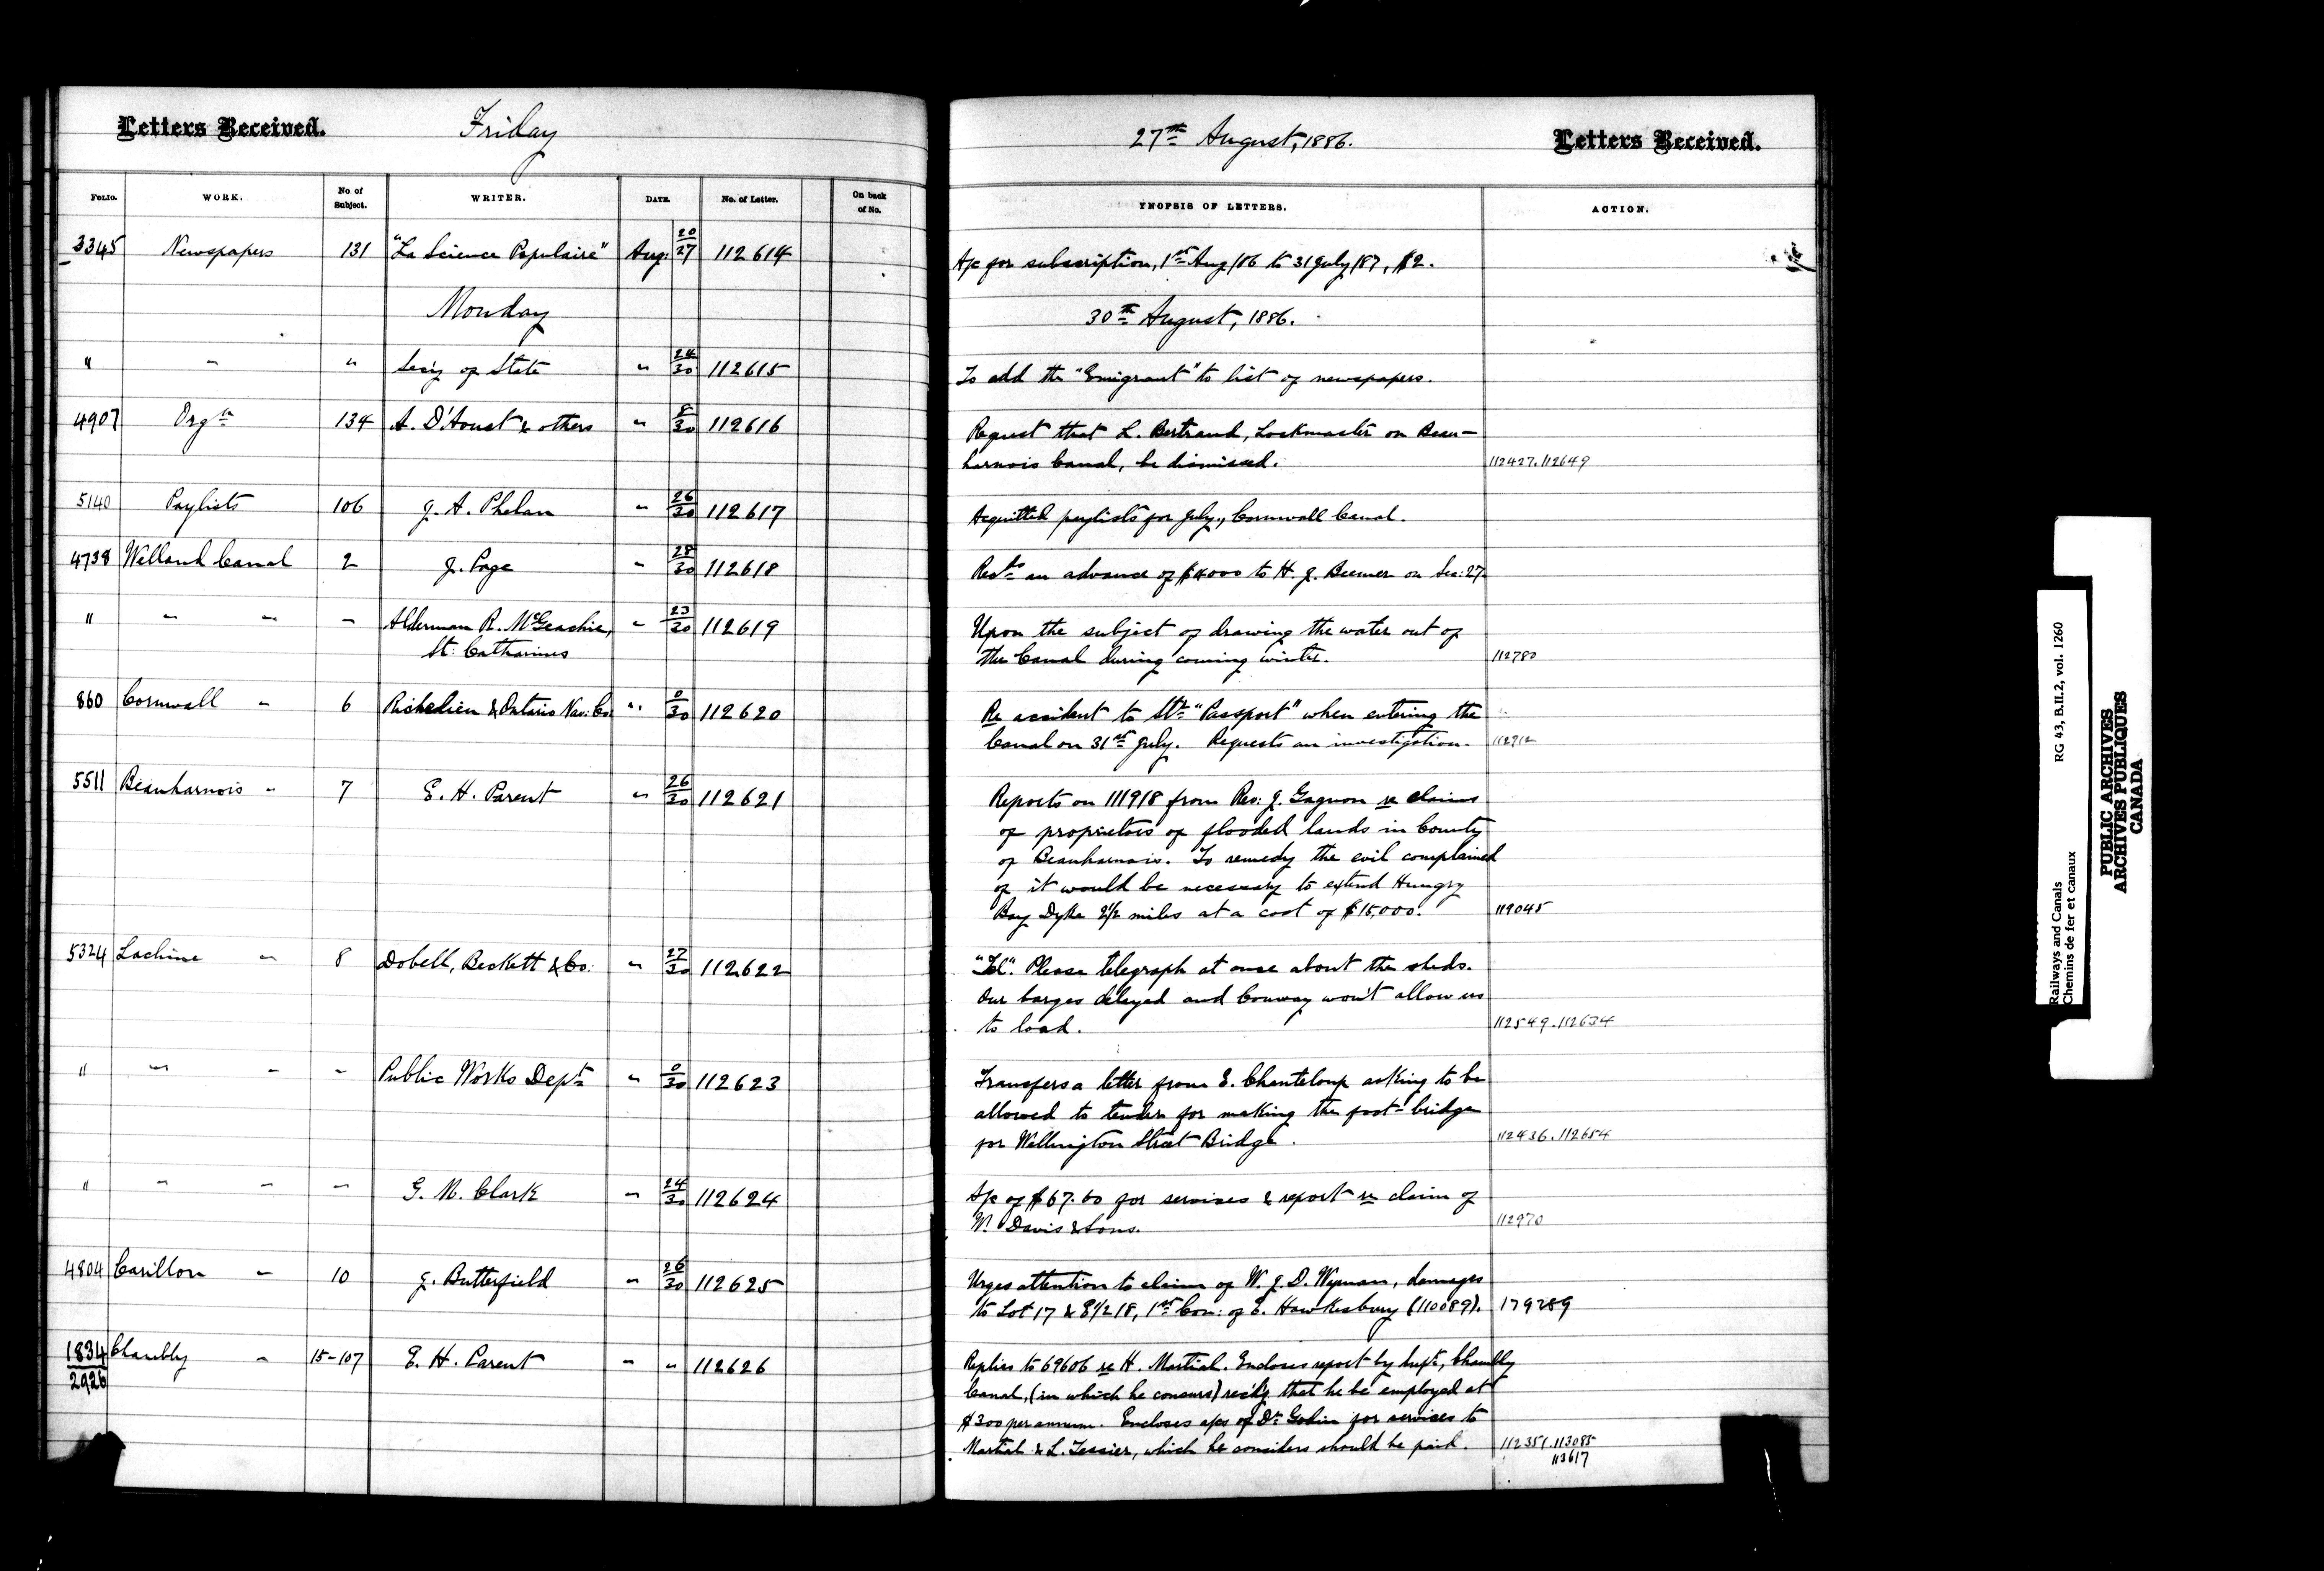 Letters Received. Friday
27th August, 1886. Letters Received.
FOLIO. WORK. No. of Subject. WRITER. DATE. No. of Letter. On back of No.
YNOPSIS OF LETTERS. ACTION.
3345 Newspapers 131 "La Science Populaire" Aug: 20/27 112614
A/c for subscription, 1st Aug/86 to 31 July/87, $2.
Monday
30th August, 1886.
" " " Sec'y of State " 24/30 112615
To add the "Emigrant" to list of newspapers.
4907 Orgn 134 A. D'Aoust & others " 8/30 112616
Request that L. Bertrand, Lockmaster on Beau-
harnois Canal, be dismissed. 112427.112649
5140 Paylists 106 J. A. Phelan " 26/30 112617
Acquitted paylists for July, Cornwall Canal.
4738 Welland Canal 2 J. Page " 28/30 112618
Recds an advance of $4000 to H. J. Beemer on Sec: 27.
" " " " Alderman R. McGeachie, " 23/30 112619
St: Catharines
Upon the subject of drawing the water out of
the Canal during coming winter. 112780
860 Cornwall " 6 Richelieu & Ontario Nav: Co: " 0/30 112620
Re accident to Str "Passport" when entering the
Canal on 31st July. Requests an investigation. 112912
5511 Beauharnois " 7 E. H. Parent " 26/30 112621
Reports on 111918 from Rev: J. Gagnon re claims
of proprietors of flooded lands in County
of Beauharnois. To remedy the evil complained
of it would be necessary to extend Hungry
Bay Dyke 2 1/2 miles at a cost of $15,000. 119045
5324 Lachine " 8 Dobell, Beckett & Co: " 27/30 112622
"Tel". Please telegraph at once about the sheds.
Our barges delayed and Conway won't allow us
to load. 112549.112634
" " " " Public Works Dept " 0/30 112623
Transfers a letter from E. Chanteloup asking to be
allowed to tender for making the foot-bridge
for Wellington Street Bridge. 112436.112654
" " " " G. M. Clark " 24/30 112624
A/c of $67.60 for services & report re claim of
W. Davis & Sons. 112970
4804 Carillon " 10 J. Butterfield " 26/30 112625
Urges attention to claim of W. J. D. Wyman, damages
to Lot 17 & E1/2 18, 1st Con: of E. Hawkesbury (110089). 179289
1834/2926 Chambly " 15-107 E. H. Parent " " 112626
Replies to 69606 re H. Martial. Encloses report by Supt, Chambly
Canal, (in which he concurs) rec'dg that he be employed at
$300 per annum. Encloses a/cs of Dr for services to
Martial & L. Tessier, which he considers should be paid. 112351.113085
113617
Railways and Canals RG 43, B.II.2, vol. 1260
Chemins de fer et canaux
PUBLIC ARCHIVES
ARCHIVES PUBLIQUES
CANADA